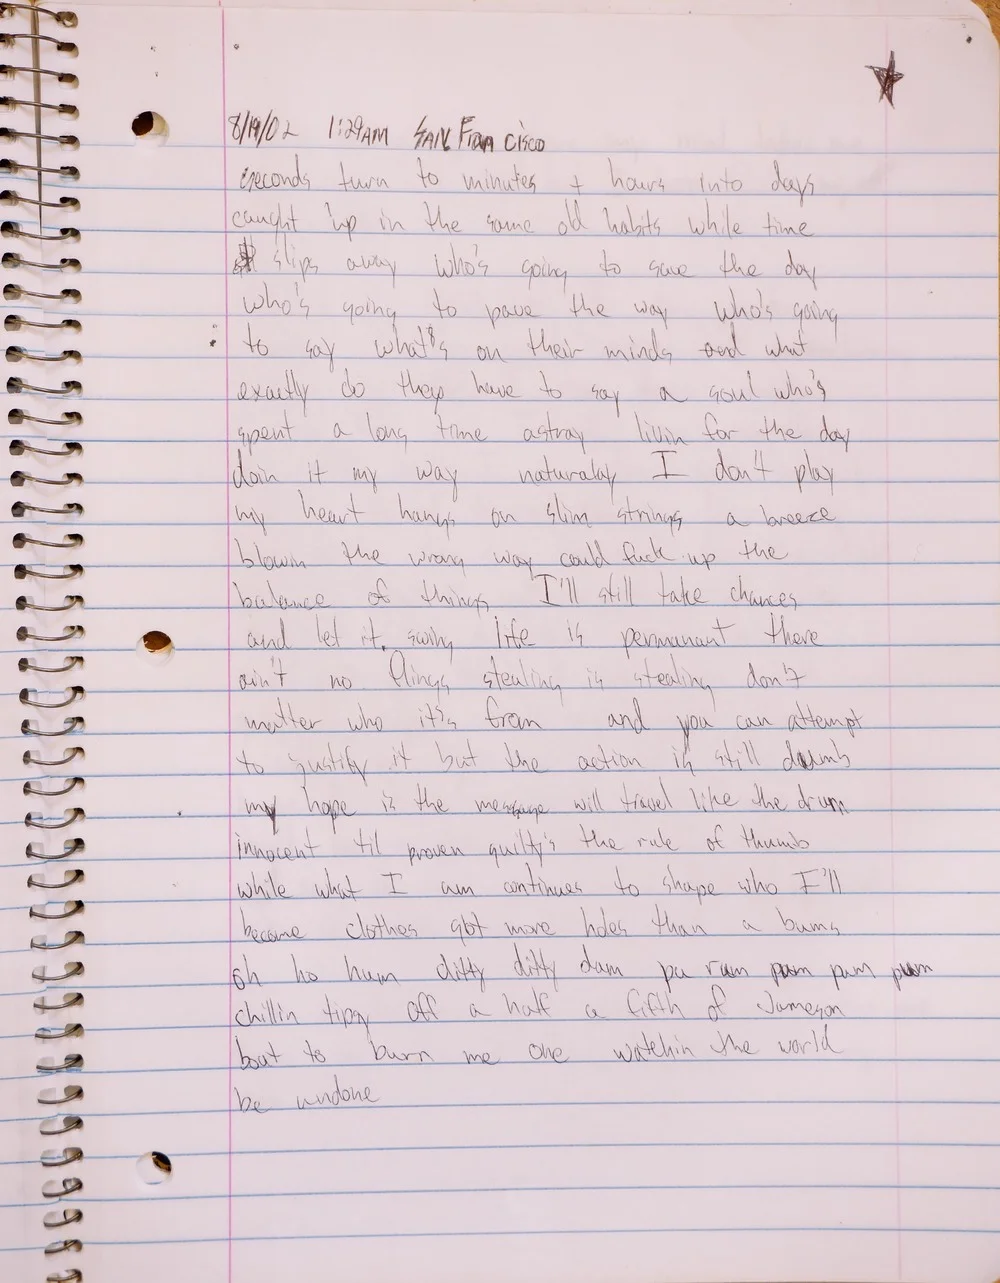 8/19/02 1:29AM SAN Fran cisco
seconds turn to minutes + hours into days
caught up in the same old habits while time
slips away who's going to save the day
who's going to pave the way who's going
to say what's on their minds and what
exactly do they have to say a soul who's
spent a long time astray livin for the day
doin it my way naturalay I don't play
my heart hangs on slim strings a breeze
blowin the wrong way could fuck up the
balance of things I'll still take chances
and let it swing life is permanant there
ain't no flings stealing is stealing don't
matter who it's from and you can attempt
to justify it but the action is still dumb
my hope is the message will travel like the drum
innocent til proven guilty's the rule of thumb
while what I am continues to shape who I'll
become clothes got more holes than a bums
oh ho hum ditty ditty dum pa rum pum pum pum
chillin tipsy off a half a fifth of Jameson
bout to burn me one watchin the world
be undone